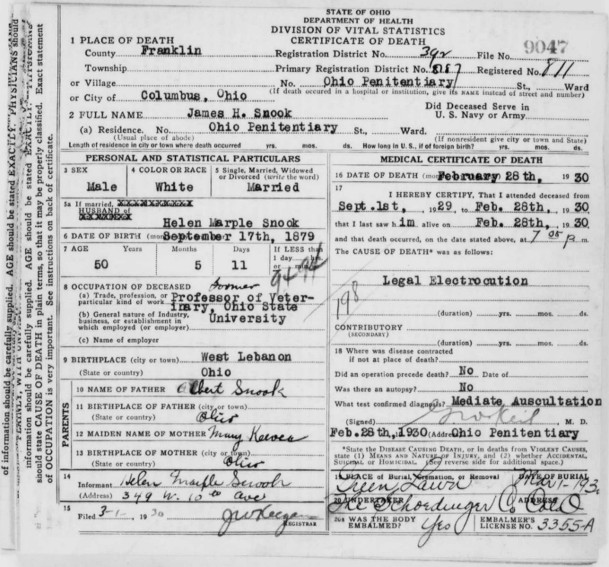 STATE OF OHIO
DEPARTMENT OF HEALTH
DIVISION OF VITAL STATISTICS
CERTIFICATE OF DEATH
9047
1 PLACE OF DEATH
County Franklin Registration District No. 392 File No.
Township Primary Registration District No. 8187 Registered No. 811
or Village No. Ohio Penitentiary St., Ward
or City of Columbus, Ohio (If death occurred in a hospital or institution, give its NAME instead of street and number)
2 FULL NAME James H. Snook Did Deceased Serve in U. S. Navy or Army
(a) Residence. No. Ohio Penitentiary St., Ward.
(Usual place of abode) (If nonresident give city or town and State)
Length of residence in city or town where death occurred yrs. mos. ds. How long in U. S., if of foreign birth? yrs. mos. ds.
PERSONAL AND STATISTICAL PARTICULARS
3 SEX Male
4 COLOR OR RACE White
5 Single, Married, Widowed or Divorced (write the word) Married
5a If married,
HUSBAND of
Helen Marple Snook
6 DATE OF BIRTH September 17th, 1879
7 AGE Years Months Days If LESS than
50 5 11 1 day
8 OCCUPATION OF DECEASED former
(a) Trade, profession, or particular kind of work Professor of Veter-
(b) General nature of Industry, business, or establishment in which employed (or employer) inary, Ohio State University
(c) Name of employer
9 BIRTHPLACE (city or town) West Lebanon
(State or country) Ohio
PARENTS
10 NAME OF FATHER Albert Snook
11 BIRTHPLACE OF FATHER (city or town)
(State or country) Ohio
12 MAIDEN NAME OF MOTHER Mary Keever
13 BIRTHPLACE OF MOTHER (city or town)
(State or country) Ohio
14 Informant Helen Marple Snook
(Address) 349 W. 10th Ave
15 Filed 3-1- 1930 REGISTRAR
MEDICAL CERTIFICATE OF DEATH
16 DATE OF DEATH February 28th, 1930
17 I HEREBY CERTIFY, That I attended deceased from
Sept.1st, 1929 to Feb. 28th, 1930
that I last saw him alive on Feb. 28th, 1930
and that death occurred, on the date stated above, at 7 05 P m.
The CAUSE OF DEATH* was as follows:
Legal Electrocution
198
(duration) yrs. mos. ds.
CONTRIBUTORY
(SECONDARY)
(duration) yrs. mos. ds.
18 Where was disease contracted
if not at place of death?
Did an operation precede death? No Date of
Was there an autopsy? No
What test confirmed diagnosis? Mediate Auscultation
(Signed) M. D.
Feb.28th,1930 (Address) Ohio Penitentiary
*State the DISEASE CAUSING DEATH, or in deaths from VIOLENT CAUSES, state (1) MEANS AND NATURE OF INJURY, and (2) whether ACCIDENTAL, SUICIDAL or HOMICIDAL. (See reverse side for additional space.)
19 PLACE OF Burial, Cremation, or Removal DATE OF BURIAL
Green Lawn Mar 1- 1930
20 UNDERTAKER ADDRESS
The Schoedinger Co Col O
20a WAS THE BODY EMBALMED? Yes EMBALMER'S LICENSE No. 3355-A
of information should be carefully supplied. AGE should be stated EXACTLY. PHYSICIANS should
information should be carefully supplied. AGE should be stated EXACTLY.
should state CAUSE OF DEATH in plain terms, so that it may be properly classified. Exact statement
of OCCUPATION is very important. See instructions on back of certificate.